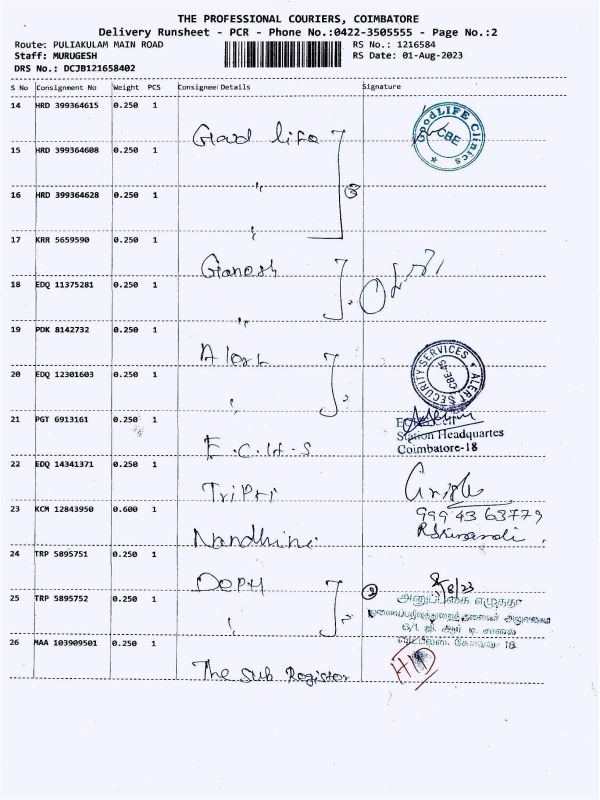 THE PROFESSIONAL COURIERS, COIMBATORE
Delivery Runsheet - PCR - Phone No.:0422-3505555 - Page No.:2
Route: PULIAKULAM MAIN ROAD RS No.: 1216584
Staff: MURUGESH RS Date: 01-Aug-2023
DRS No.: DCJB121658402
S No Consignment No Weight PCS Consignee Details Signature
14 HRD 399364615 0.250 1
Good life
GoodLIFE Clinics
CBE
15 HRD 399364608 0.250 1
"
16 HRD 399364628 0.250 1
"
17 KRR 5659590 0.250 1
Ganesh
18 EDQ 11375281 0.250 1
"
19 PDK 8142732 0.250 1
Alert
ALERT SECURITY SERVICES
CBE-45
20 EDQ 12301603 0.250 1
"
21 PGT 6913161 0.250 1
E.C.H.S
Station Headquartes
Coimbatore-18
22 EDQ 14341371 0.250 1
Tripti
23 KCM 12843950 0.600 1
Nandhini
999 43 63779
24 TRP 5895751 0.250 1
Depy
2/8/23
25 TRP 5895752 0.250 1
"
26 MAA 103909501 0.250 1
The Sub Register